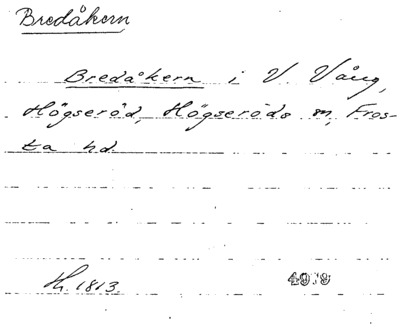 Bredåkern
Bredåkern i V. Vång,
Högseröd, Högseröds sn, Fros-
ta hd.
Lh. 1813. 4979